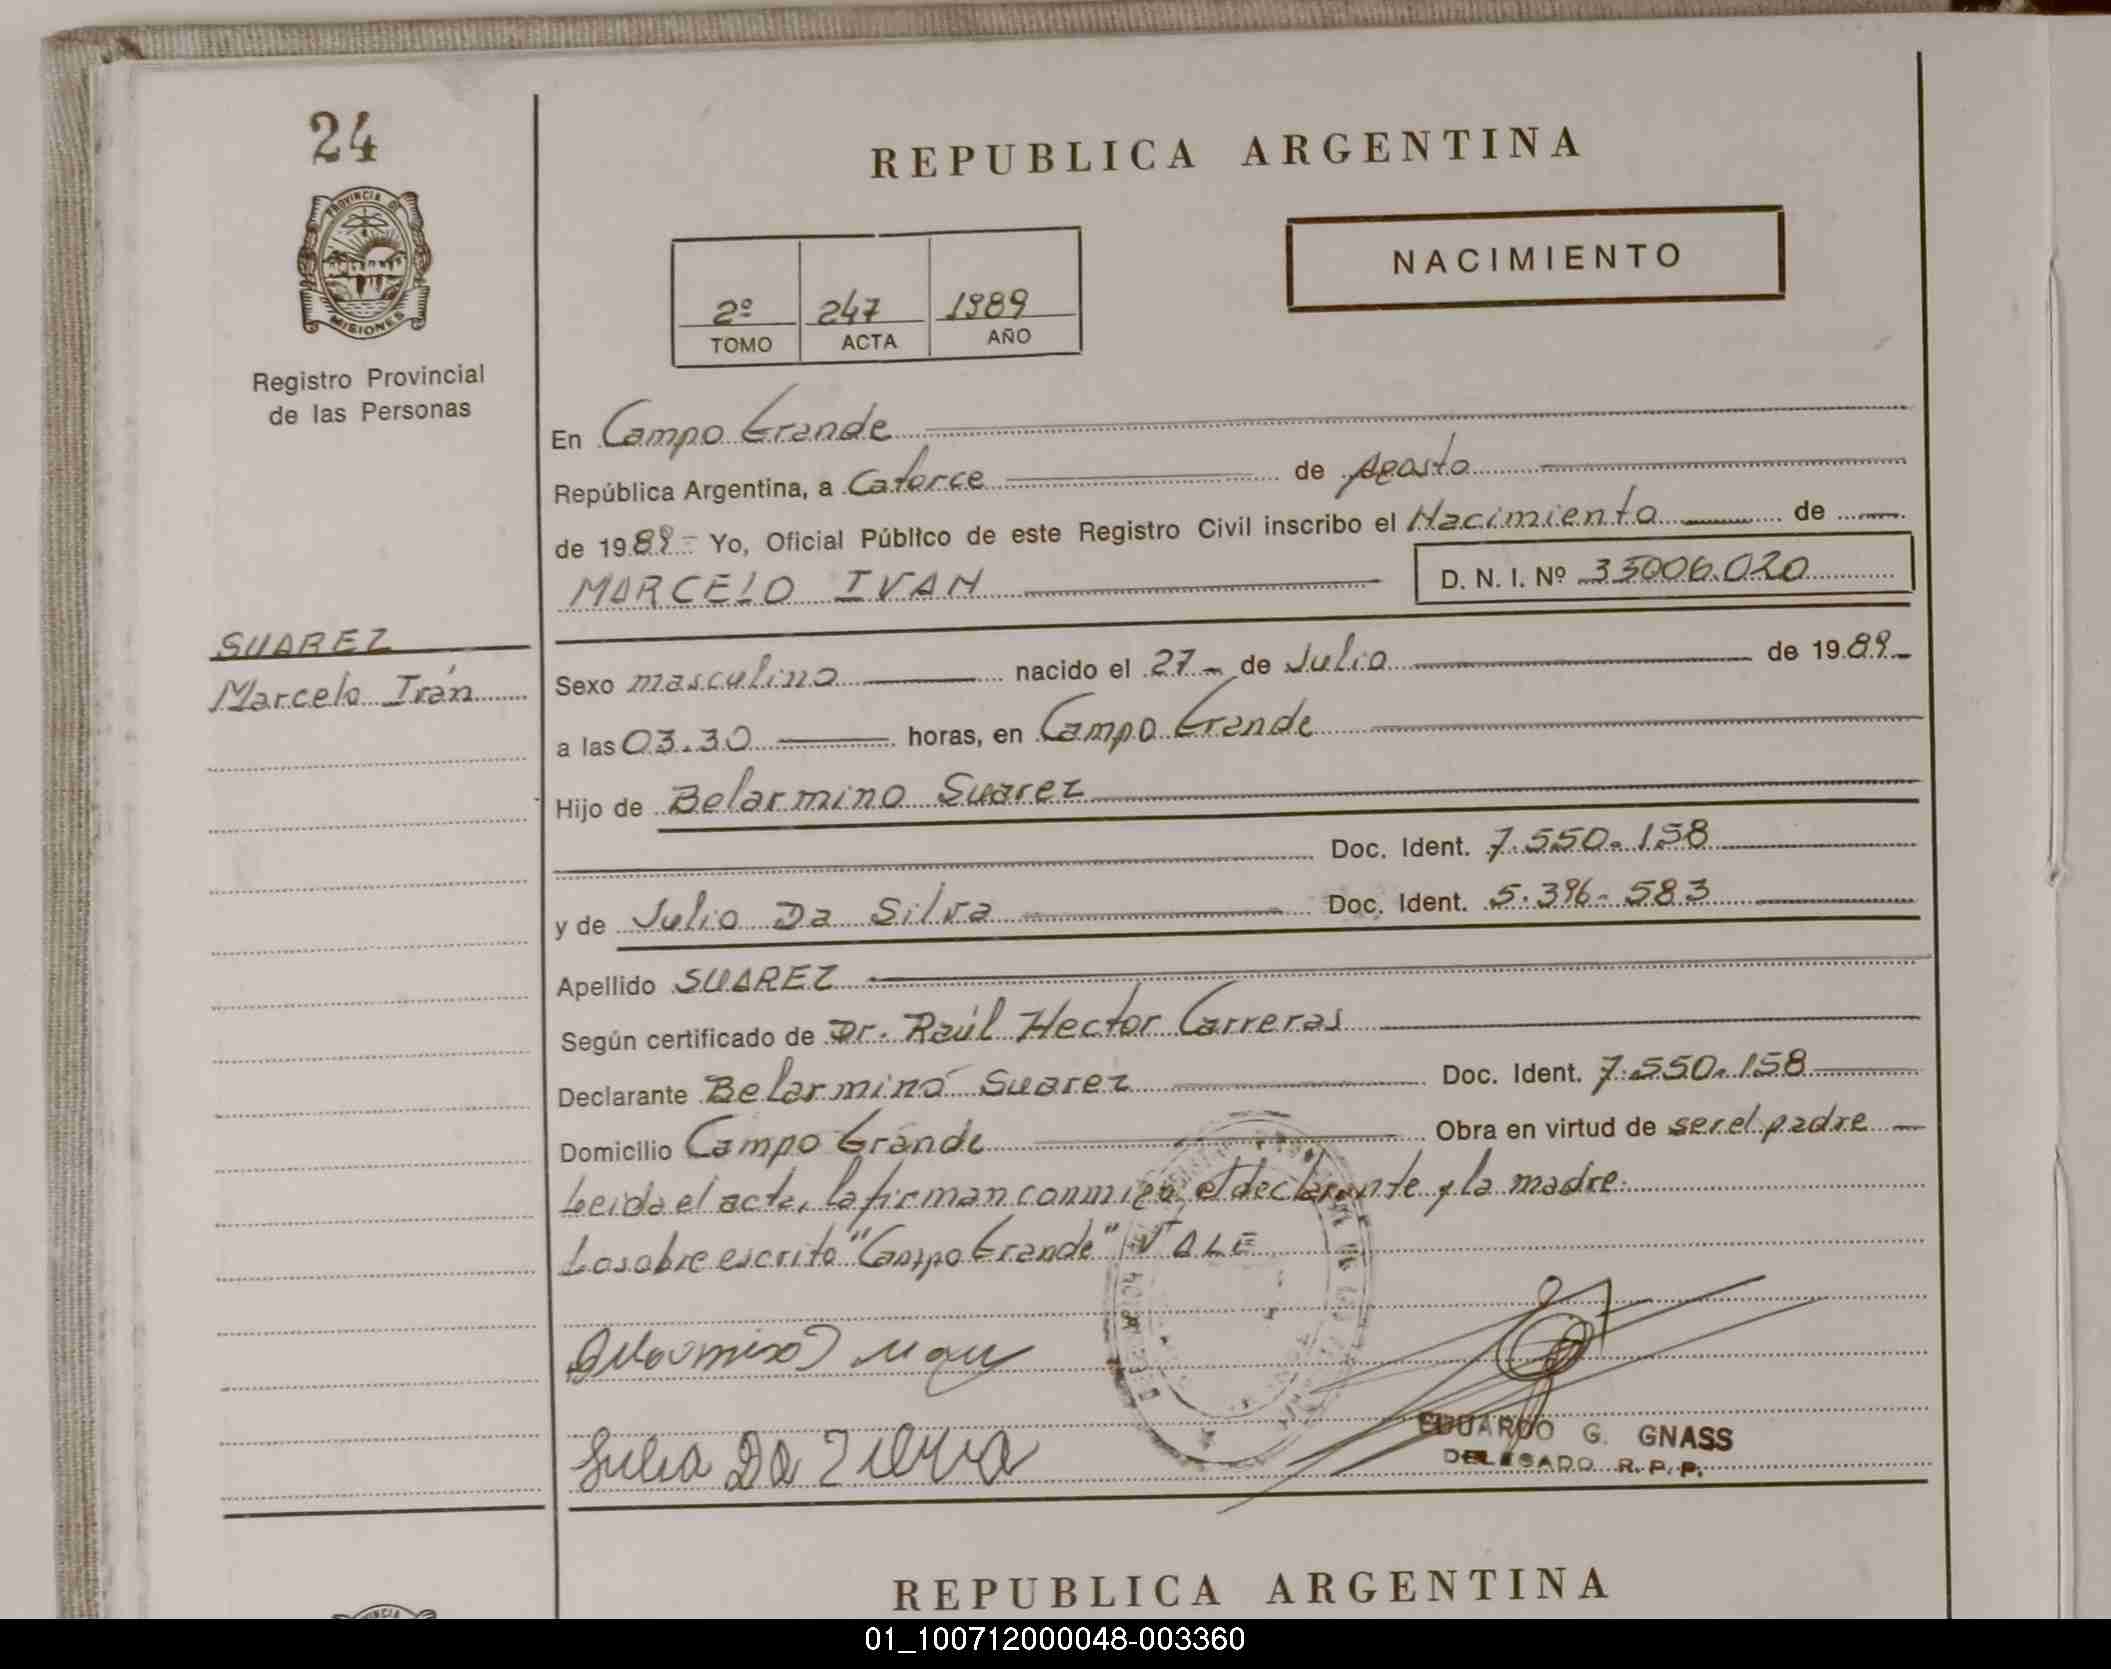 24
PROVINCIA DE
MISIONES
Registro Provincial
de las Personas
REPUBLICA ARGENTINA
NACIMIENTO
2º 247 1989
TOMO ACTA AÑO
En Campo Grande
República Argentina, a Catorce de Agosto
de 1989 Yo, Oficial Público de este Registro Civil inscribo el Nacimiento de
MARCELO IVAN D. N. I. Nº 35006.020
SUAREZ
Marcelo Iván
Sexo masculino nacido el 27 de Julio de 1989
a las 03.30 horas, en Campo Grande
Hijo de Belarmino Suarez
Doc. Ident. 7.550.158
y de Julia Da Silva Doc. Ident. 5.396.583
Apellido SUAREZ
Según certificado de Dr. Raúl Hector Carreras
Declarante Belarmino Suarez Doc. Ident. 7.550.158
Domicilio Campo Grande Obra en virtud de ser el padre
Leida el acta, la firman conmigo, el declarante y la madre.
Lo sobre escrito "Campo Grande" VALE
Julia Da Silva
EDUARDO G. GNASS
DELEGADO R.P.P.
REPUBLICA ARGENTINA
01_100712000048-003360